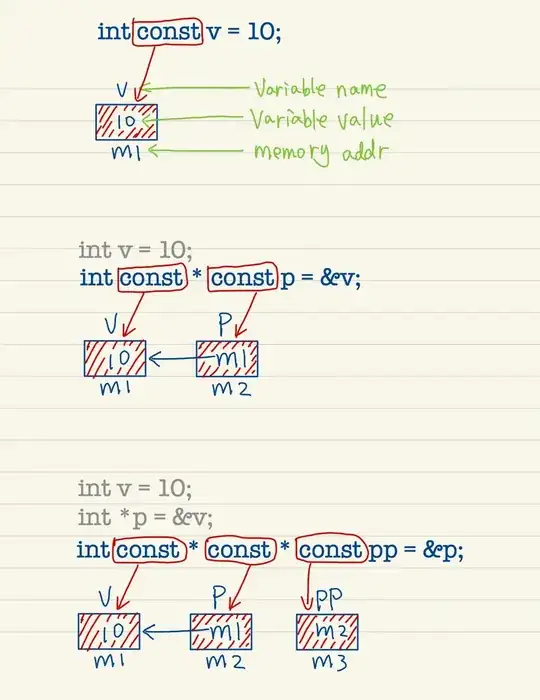 int const v = 10;
V Variable name
10 Variable value
m1 memory addr
int v = 10;
int const * const p = &v;
V P
10 m1
m1 m2
int v = 10;
int *p = &v;
int const * const * const pp = &p;
V P PP
10 m1 m2
m1 m2 m3